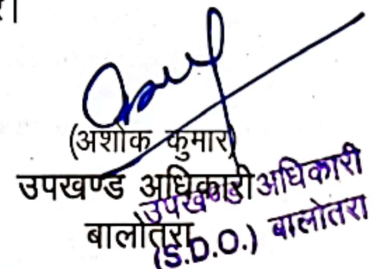 (अशोक कुमार)
उपखण्ड अधिकारी
बालोतरा
उपखण्ड अधिकारी
(S.D.O.) बालोतरा